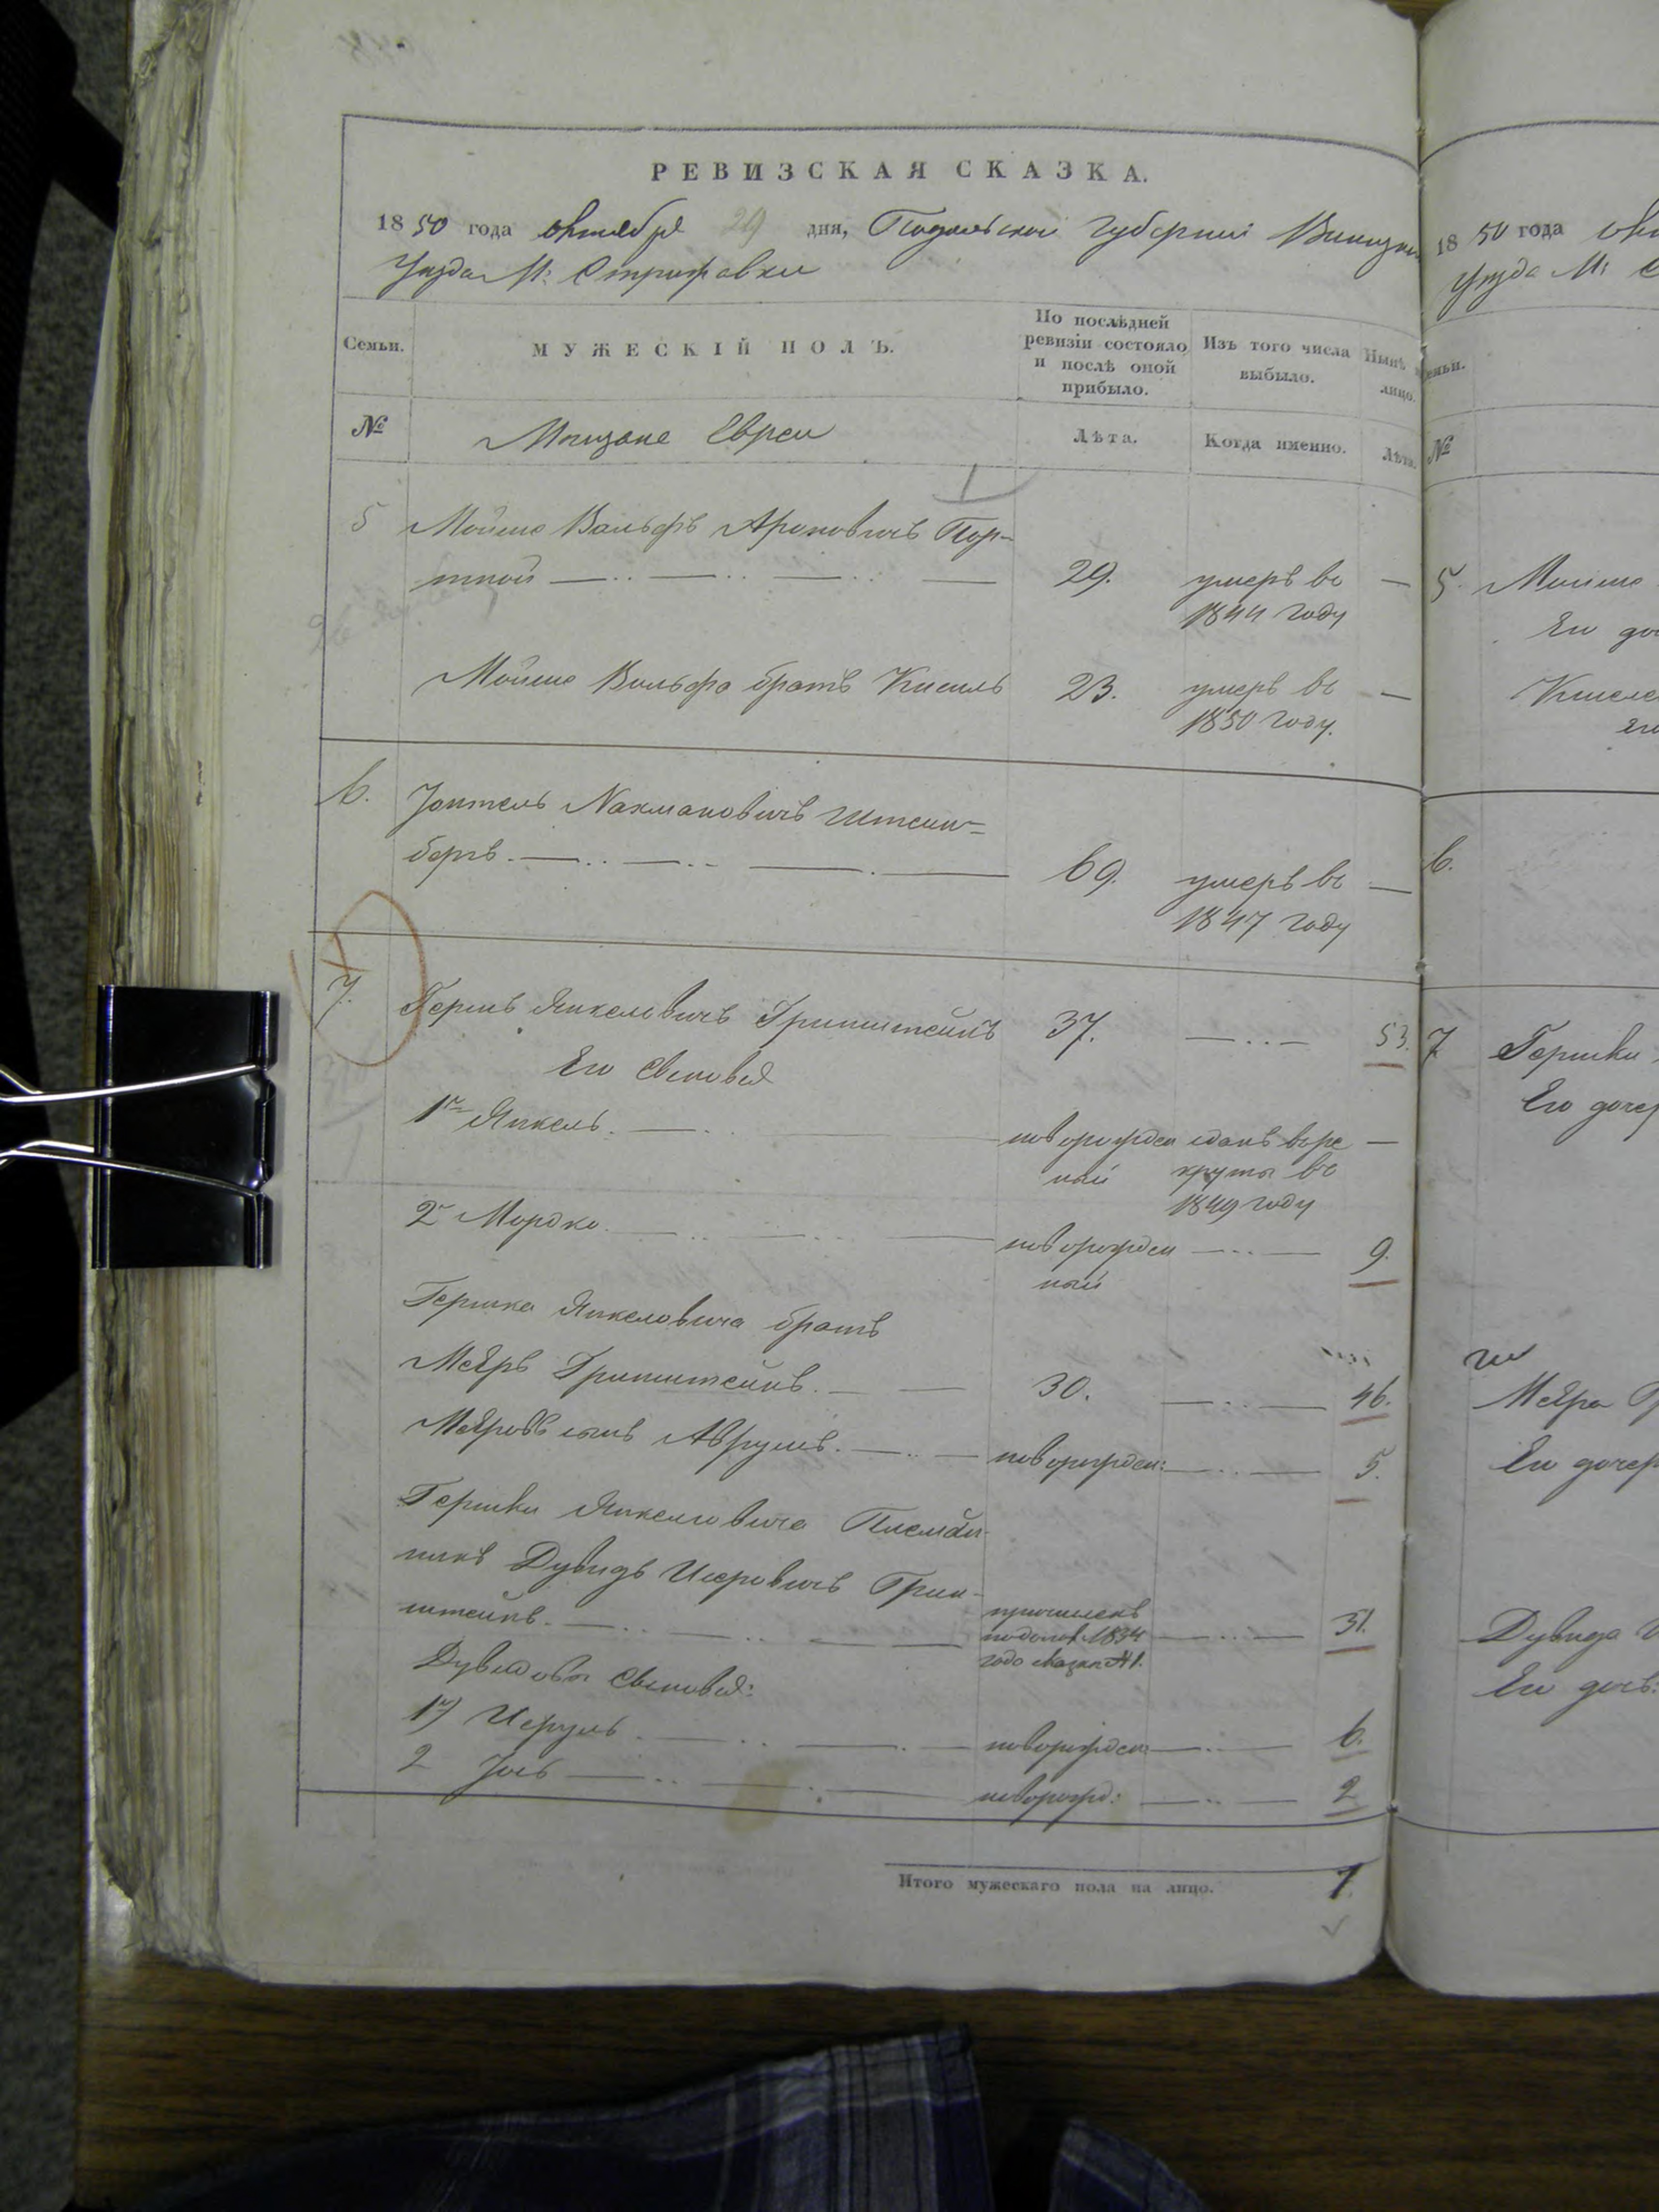 РЕВИЗСКАЯ СКАЗКА.
1850 года октября 29 дня, Подольской Губернии Винниц
уезда М: Стрижавки
Семьи.
МУЖЕСКІЙ ПОЛЪ.
По послѣдней ревизіи состояло и послѣ оной прибыло.
Изъ того числа выбыло.
Нынѣ
лицо.
№
Мещане Евреи
Лѣта.
Когда именно.
Лѣта.
5 Мойше Вольфъ Ароновичъ Порт-
ной 29. умеръ въ
1844 году
Мойше Вольфа братъ Кисиль 23. умеръ въ
1850 году.
6. Зейтель Нахмановичъ Штейн=
бергъ. 69. умеръ въ
1847 году
7. Гершъ Янкелевичъ Гринштейнъ 37. 53.
Его Сыновья
1й Янкель. новорожден сданъ въ ре
ный круты въ
1849 году
2й Мордко. новорожден 9.
ный
Гершка Янкеловича братъ
Меяръ Гринштейнъ. 30. 46.
Меяровъ сынъ Аврумъ. новорожден: 5.
Гершки Янкеловича Племян-
никъ Дувидъ Исеровичъ Грин-
штейнъ. причисленъ 31.
1834
года сказки №1.
Дувидовы Сыновья:
1й Исруль новорожден: 6.
2 Іось новорожд: 2
Итого мужескаго пола на лицо. 7.
18 50 года
уезда М:
емьи.
№
5. Мойше
Его до
6.
7. Гершки
Его дочер
Меяра
Его дочер
Дувида
Его дочь: